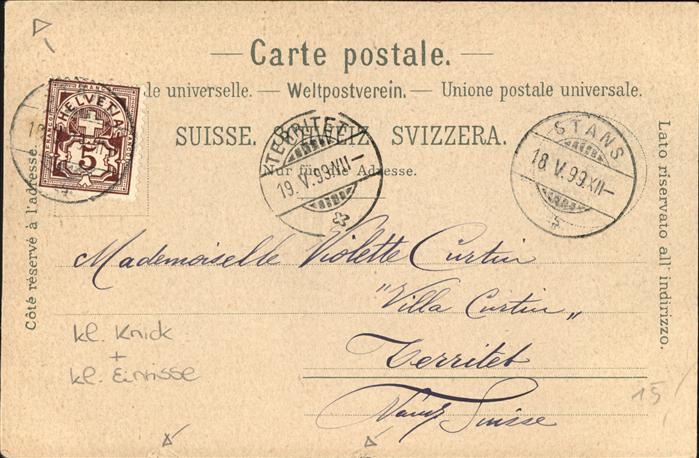 Carte postale.
le universelle. — Weltpostverein. — Unione postale universale.
SUISSE. SCHWEIZ. SVIZZERA.
Nur für die Adresse.
Côté réservé à l'adresse.
Lato riservato all' indirizzo.
HELVETIA
5
TERRITET
19.V.99.XII—
STANS
18.V.99.XII—
Mademoiselle Violette Curtin
"Villa Curtin"
Territet
Suisse
kl. Knick
+
kl. Einrisse
15